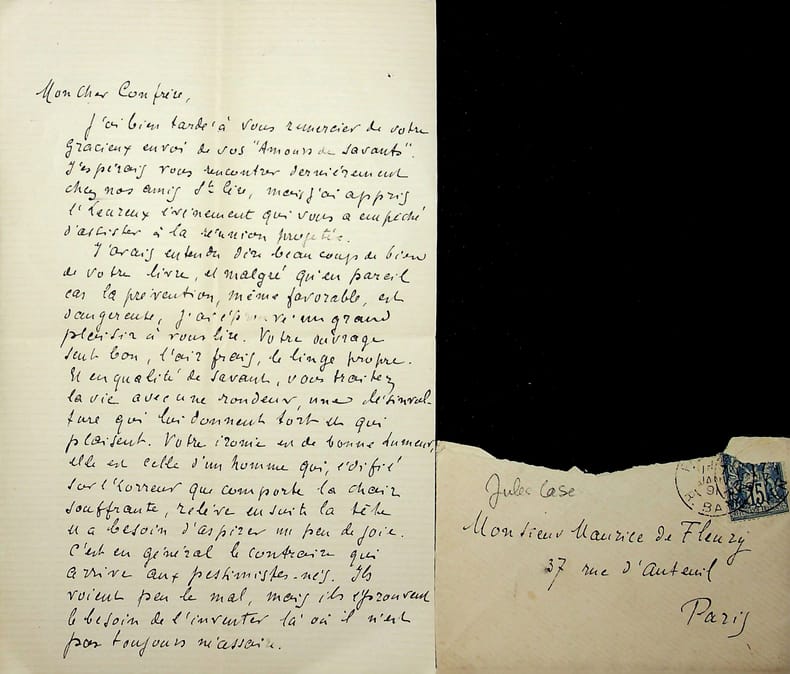 Mon cher Confrère,
J'ai bien tardé à vous remercier de votre
gracieux envoi de vos "Amours de savants".
J'espérais vous rencontrer dernièrement
chez nos amis St. Cère, mais j'ai appris
l'heureux évènement qui vous a empêché
d'assister à la réunion projetée.
J'avais entendu dire beaucoup de bien
de votre livre, et malgré qu'en pareil
cas la prévention, même favorable, est
dangereuse, j'ai éprouvé un grand
plaisir à vous lire. Votre ouvrage
sent bon, l'air frais, le linge propre.
Et en qualité de savant, vous traitez
la vie avec une rondeur, une désinvol
ture qui lui donnent tort et qui
plaisent. Votre ironie est de bonne humeur,
elle est celle d'un homme qui, édifié
sur l'horreur que comporte la chair
souffrante, relève ensuite la tête
et a besoin d'aspirer un peu de joie.
C'est en général le contraire qui
arrive aux pessimistes-nés. Ils
voient peu le mal, mais ils éprouvent
le besoin de l'inventer là où il n'est
pas toujours nécessaire.
Jules Case
15
Monsieur Maurice de Fleury
37 rue d'Auteuil
Paris